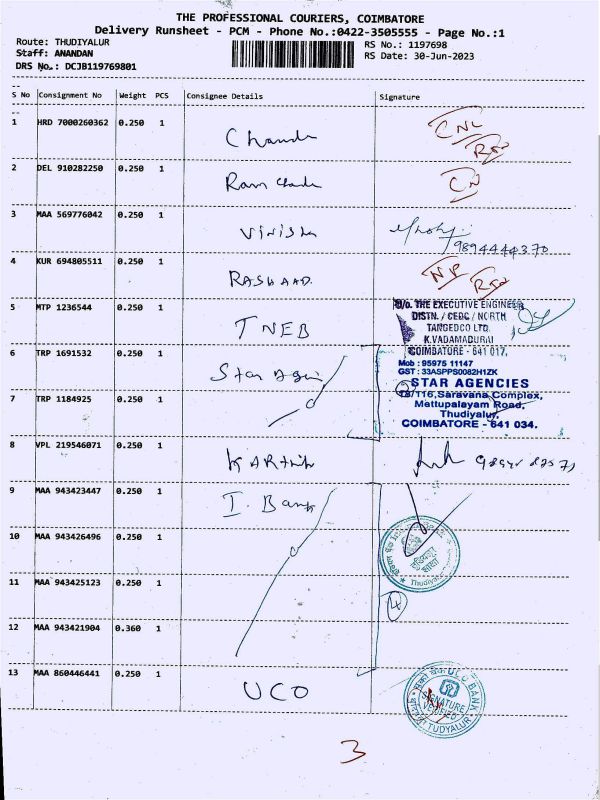 THE PROFESSIONAL COURIERS, COIMBATORE
Delivery Runsheet - PCM - Phone No.:0422-3505555 - Page No.:1
Route: THUDIYALUR
RS No.: 1197698
Staff: ANANDAN
RS Date: 30-Jun-2023
DRS No.: DCJB119769801
S No Consignment No Weight PCS Consignee Details Signature
1 HRD 7000260362 0.250 1
2 DEL 910282250 0.250 1
3 MAA 569776042 0.250 1
9894444370
4 KUR 694805511 0.250 1 RASHAAD. NP
5 MTP 1236544 0.250 1 TNEB
O/o. THE EXECUTIVE ENGINEER
DISTN. / CEDC / NORTH
TANGEDCO LTD.
K.VADAMADURAI
COIMBATORE - 641 017.
6 TRP 1691532 0.250 1
Mob : 95975 11147
GST : 33ASPPS0082H1ZK
STAR AGENCIES
7 TRP 1184925 0.250 1
18/116,Saravana Complex,
Mettupalayam Road,
Thudiyalur,
COIMBATORE - 641 034.
8 VPL 219546071 0.250 1 KARTHIK
9 MAA 943423447 0.250 1 I. Bank
10 MAA 943426496 0.250 1
11 MAA 943425123 0.250 1
4
12 MAA 943421904 0.360 1
13 MAA 860446441 0.250 1 UCO
UCO BANK
SIGNATURE
VERIFIED
TUDYALUR
3